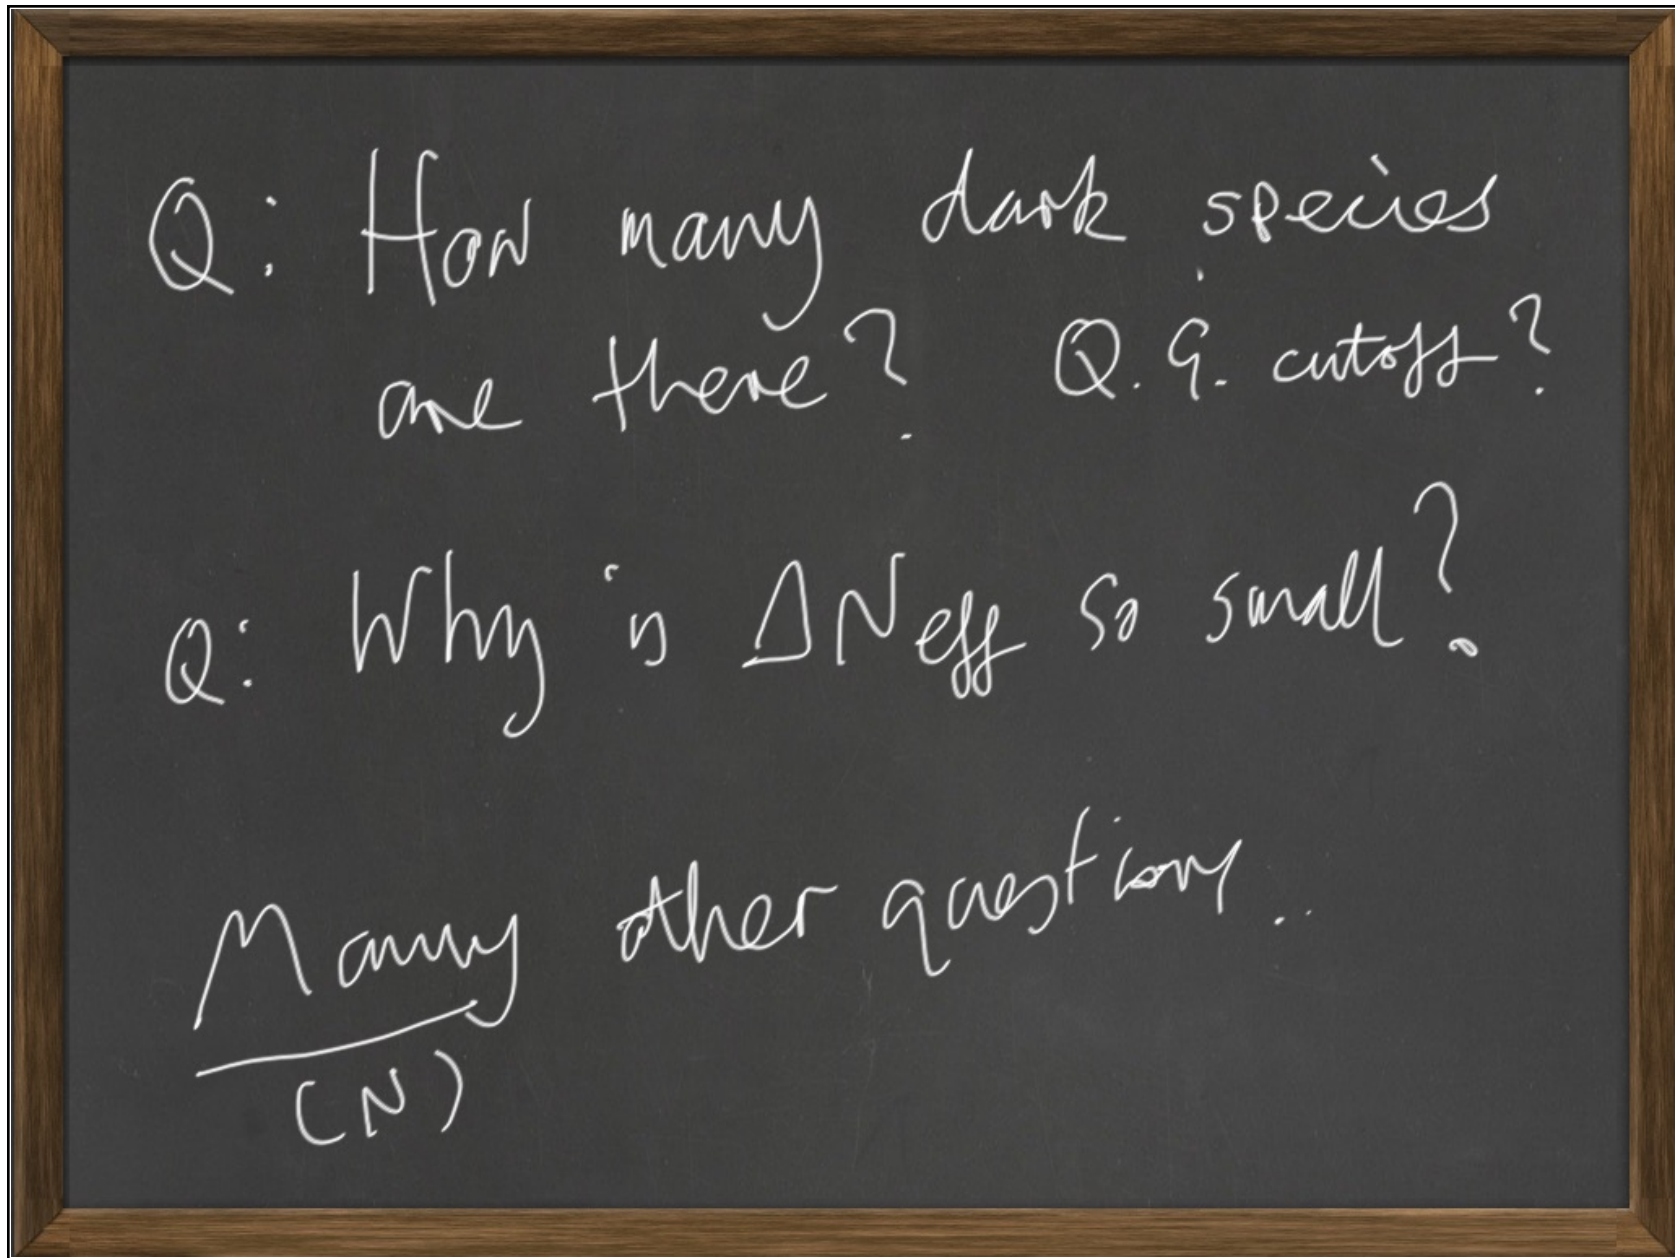 Q: How many dark species
are there? Q. G. cutoff?
Q: Why is ΔNeff so small?
Many other questions..
(N)